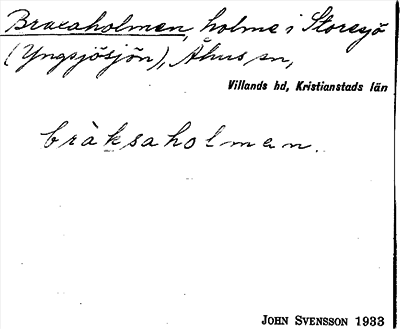 Braxaholmen, holme i Storesjö
(Yngsjösjön), Åhus sn,
Villands hd, Kristianstads län
bràksaholman.
JOHN SVENSSON 1933